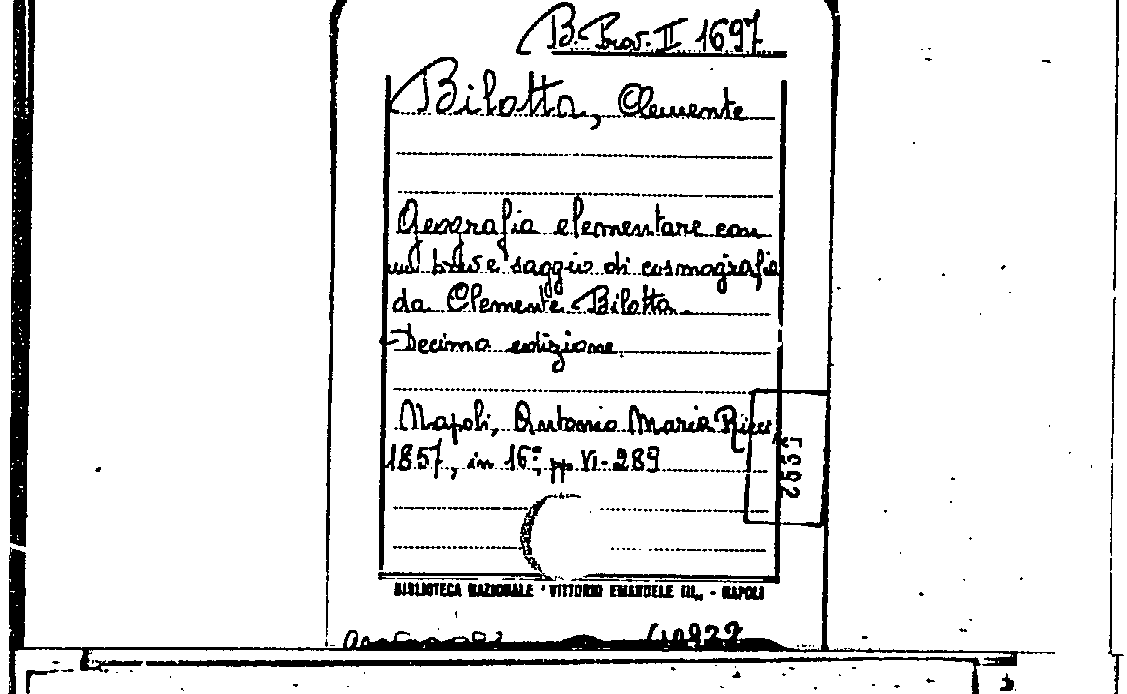 B. Prov. II 1697
Bilotta, Clemente
Geografia elementare con
un breve saggio di cosmografia
da Clemente Bilotta.
Decima edizione.
Napoli, Antonio Maria Ricci,
1857, in 16º, pp. VI-289
BIBLIOTECA NAZIONALE "VITTORIO EMANUELE III" - NAPOLI